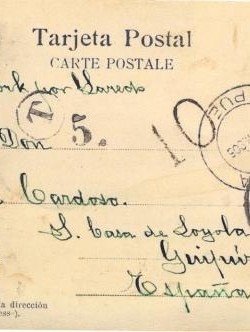 Tarjeta Postal
CARTE POSTALE
ork por Laredo
T
5.
10
Don
PUE
Cardoso.
S. Casa de Loyola
Guipúz
España
la dirección
ess-).